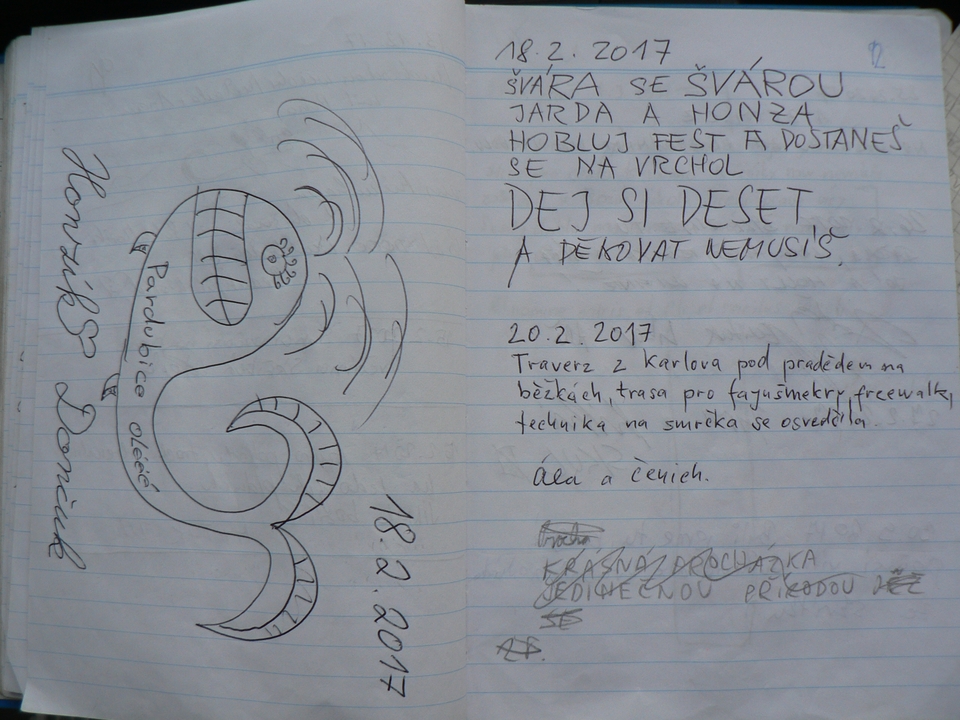 Honzík Dončuk
Pardubice olééé
18.2.2017
18.2.2017
ŠVÁRA SE ŠVÁROU
JARDA A HONZA
HOBLUJ FEST A DOSTANEŠ
SE NA VRCHOL
DEJ SI DESET
A DĚKOVAT NEMUSÍŠ.
20.2.2017
Traverz z Karlova pod pradědem na
běžkách, trasa pro fajnšmekry, freewalk,
technika na smrčka se osvedčila.
a čenich.
KRÁSNÁ PROCHÁZKA
JEDINEČNOU PŘÍRODOU